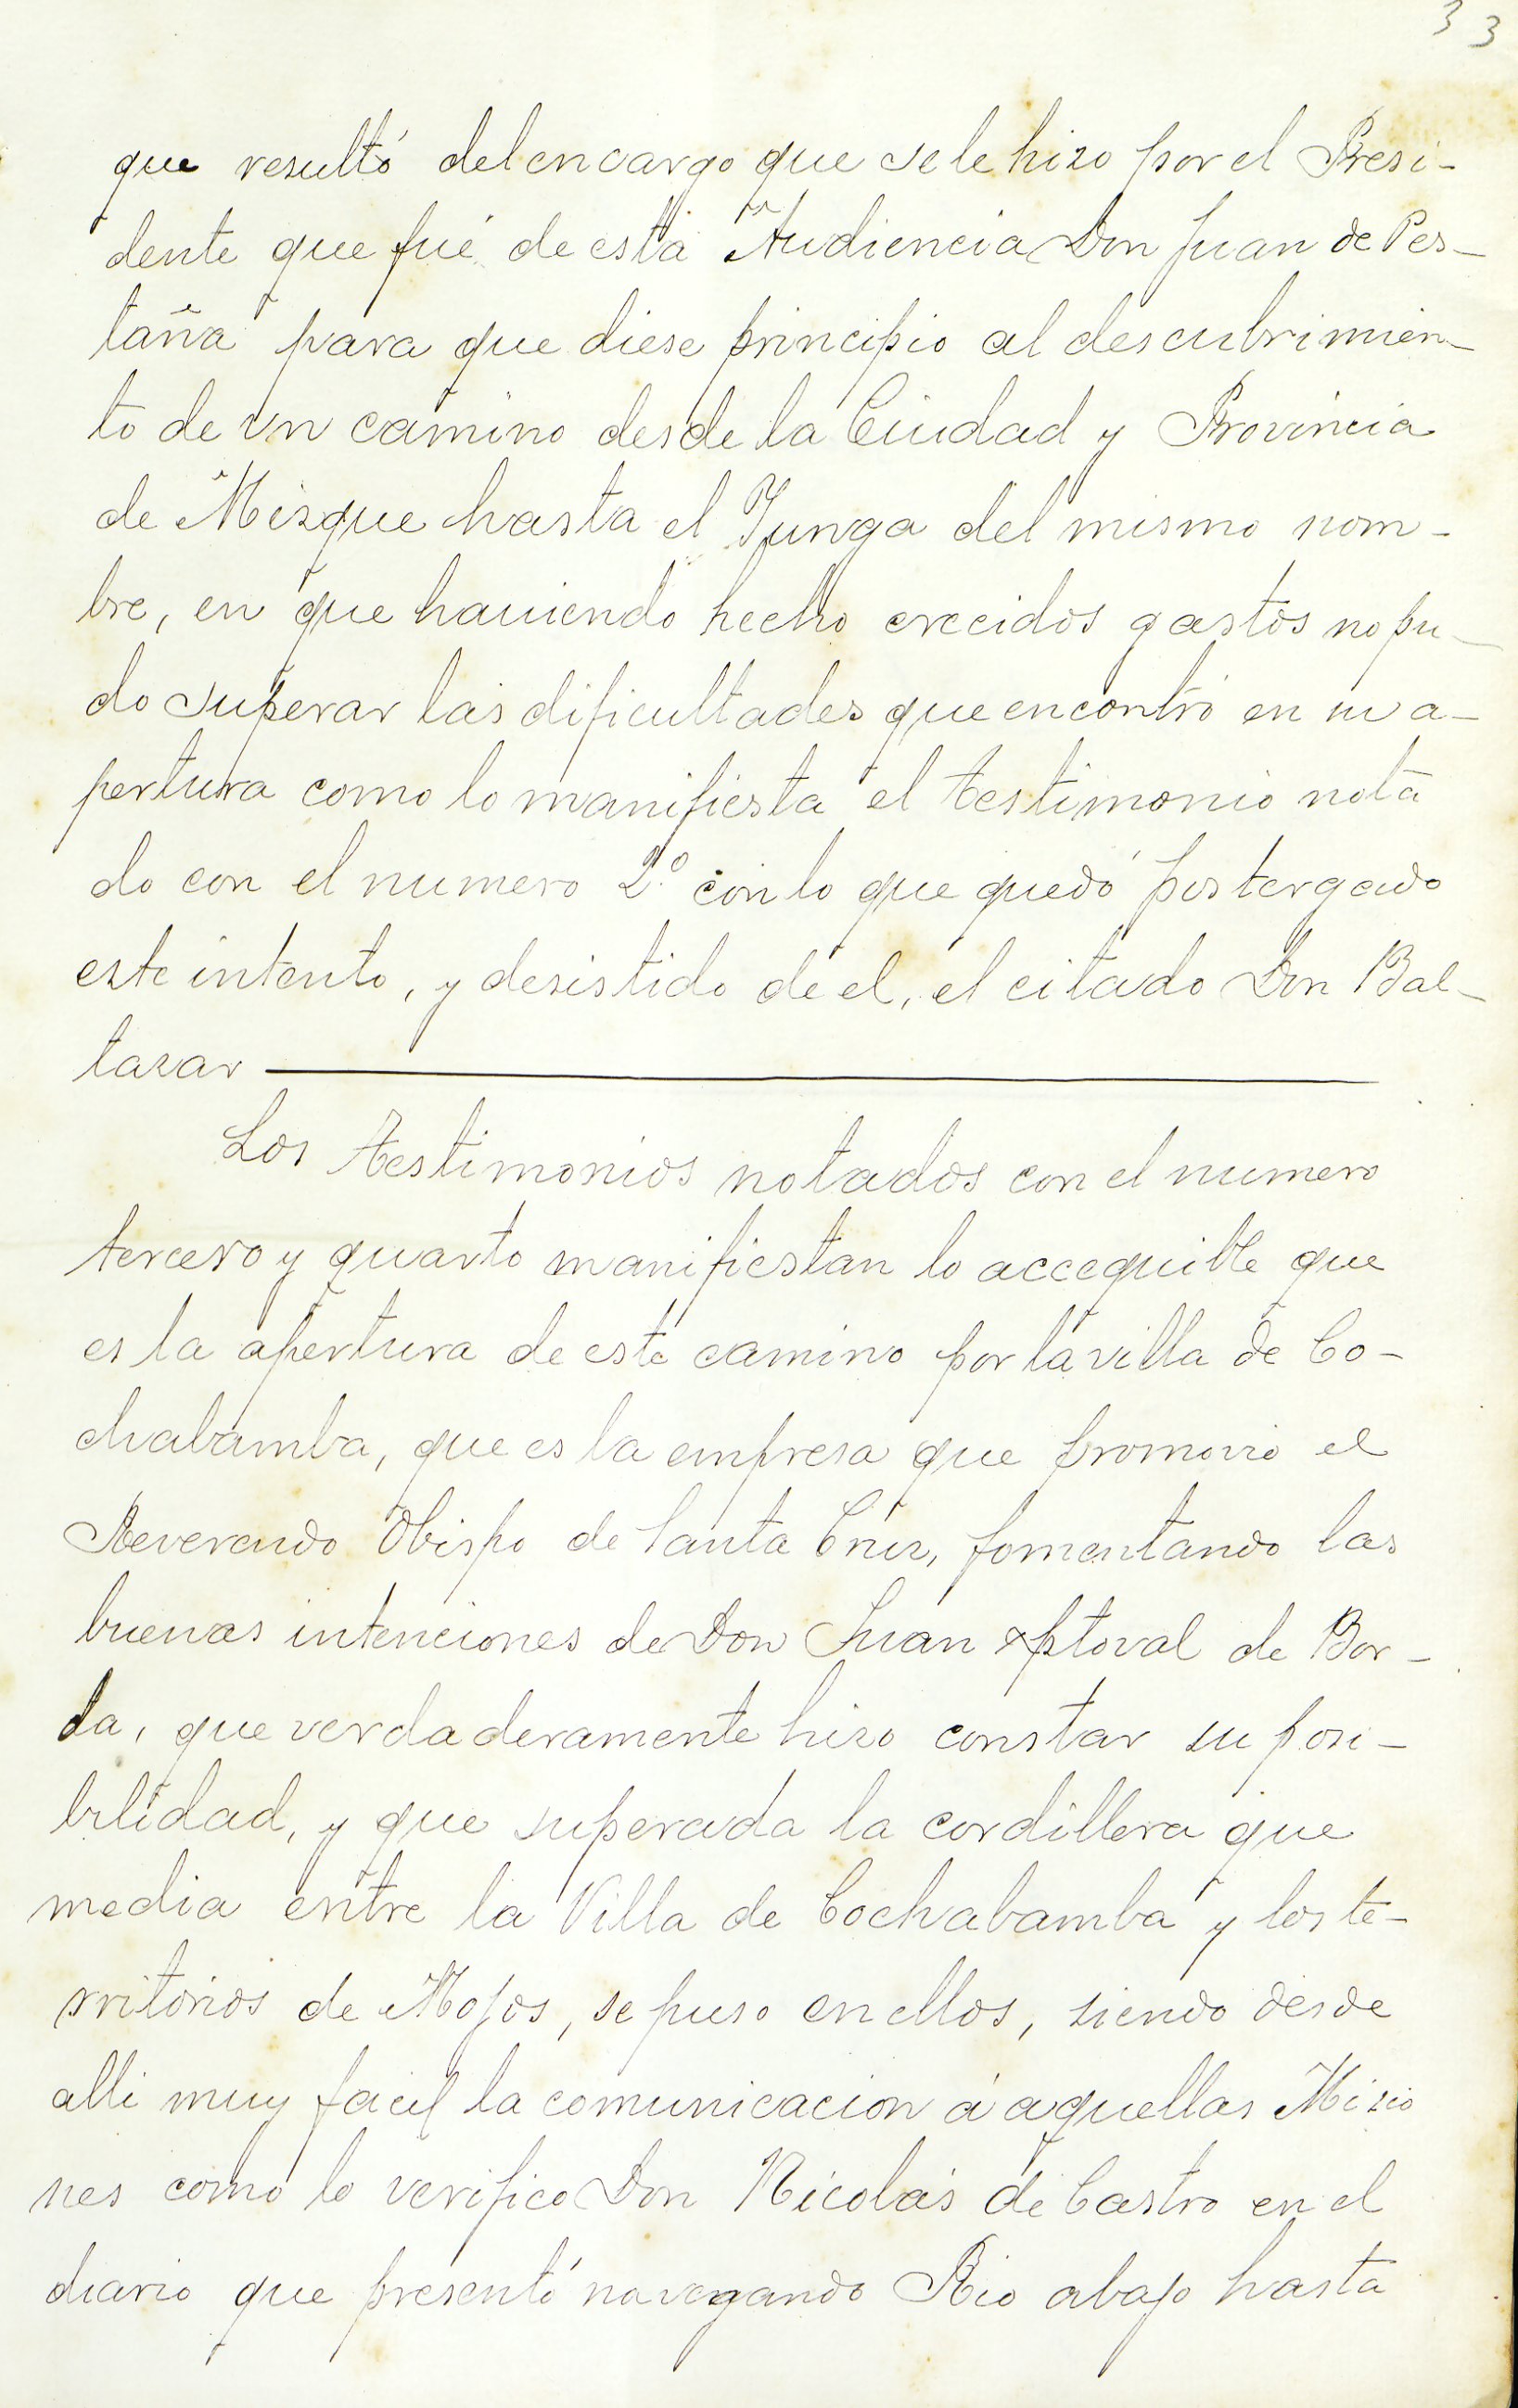 33
que resultó del encargo que se le hizo por el Presi-
dente que fué de esta Audiencia Don Juan de Pes-
taña para que diese principio al descubrimien-
to de vn camino desde la Ciudad y Provincia
de Mizque hasta el Yunga del mismo nom-
bre, en que hauiendo hecho crecidos gastos no pu-
do superar las dificultades que encontró en su a-
pertura como lo manifiesta el testimonio nota
do con el numero 2º con lo que quedó postergado
este intento, y desistido de el, el citado Don Bal-
tazar
Los testimonios notados con el numero
tercero y quarto manifiestan lo accequible que
es la apertura de este camino por la villa de Co-
chabamba, que es la empresa que promovio el
Reverendo Obispo de Santa Cruz, fomentando las
buenas intenciones de Don Juan Xptoval de Bor-
da, que verdaderamente hizo constar su posi-
bilidad, y que superada la cordillera que
media entre la Villa de Cochabamba y los te-
rritorios de Mojos, se puso en ellos, siendo desde
alli muy facil la comunicacion á aquellas Misio
nes como lo verifico Don Nicolás de Castro en el
diario que presentó navegando Rio abajo hasta